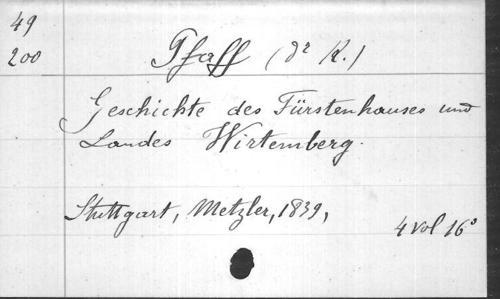 49
200
Pfaff (Dr K.)
Geschichte des Fürstenhauses und
Landes Wirtemberg.
Stuttgart, Metzler, 1839,
4 vol 16°